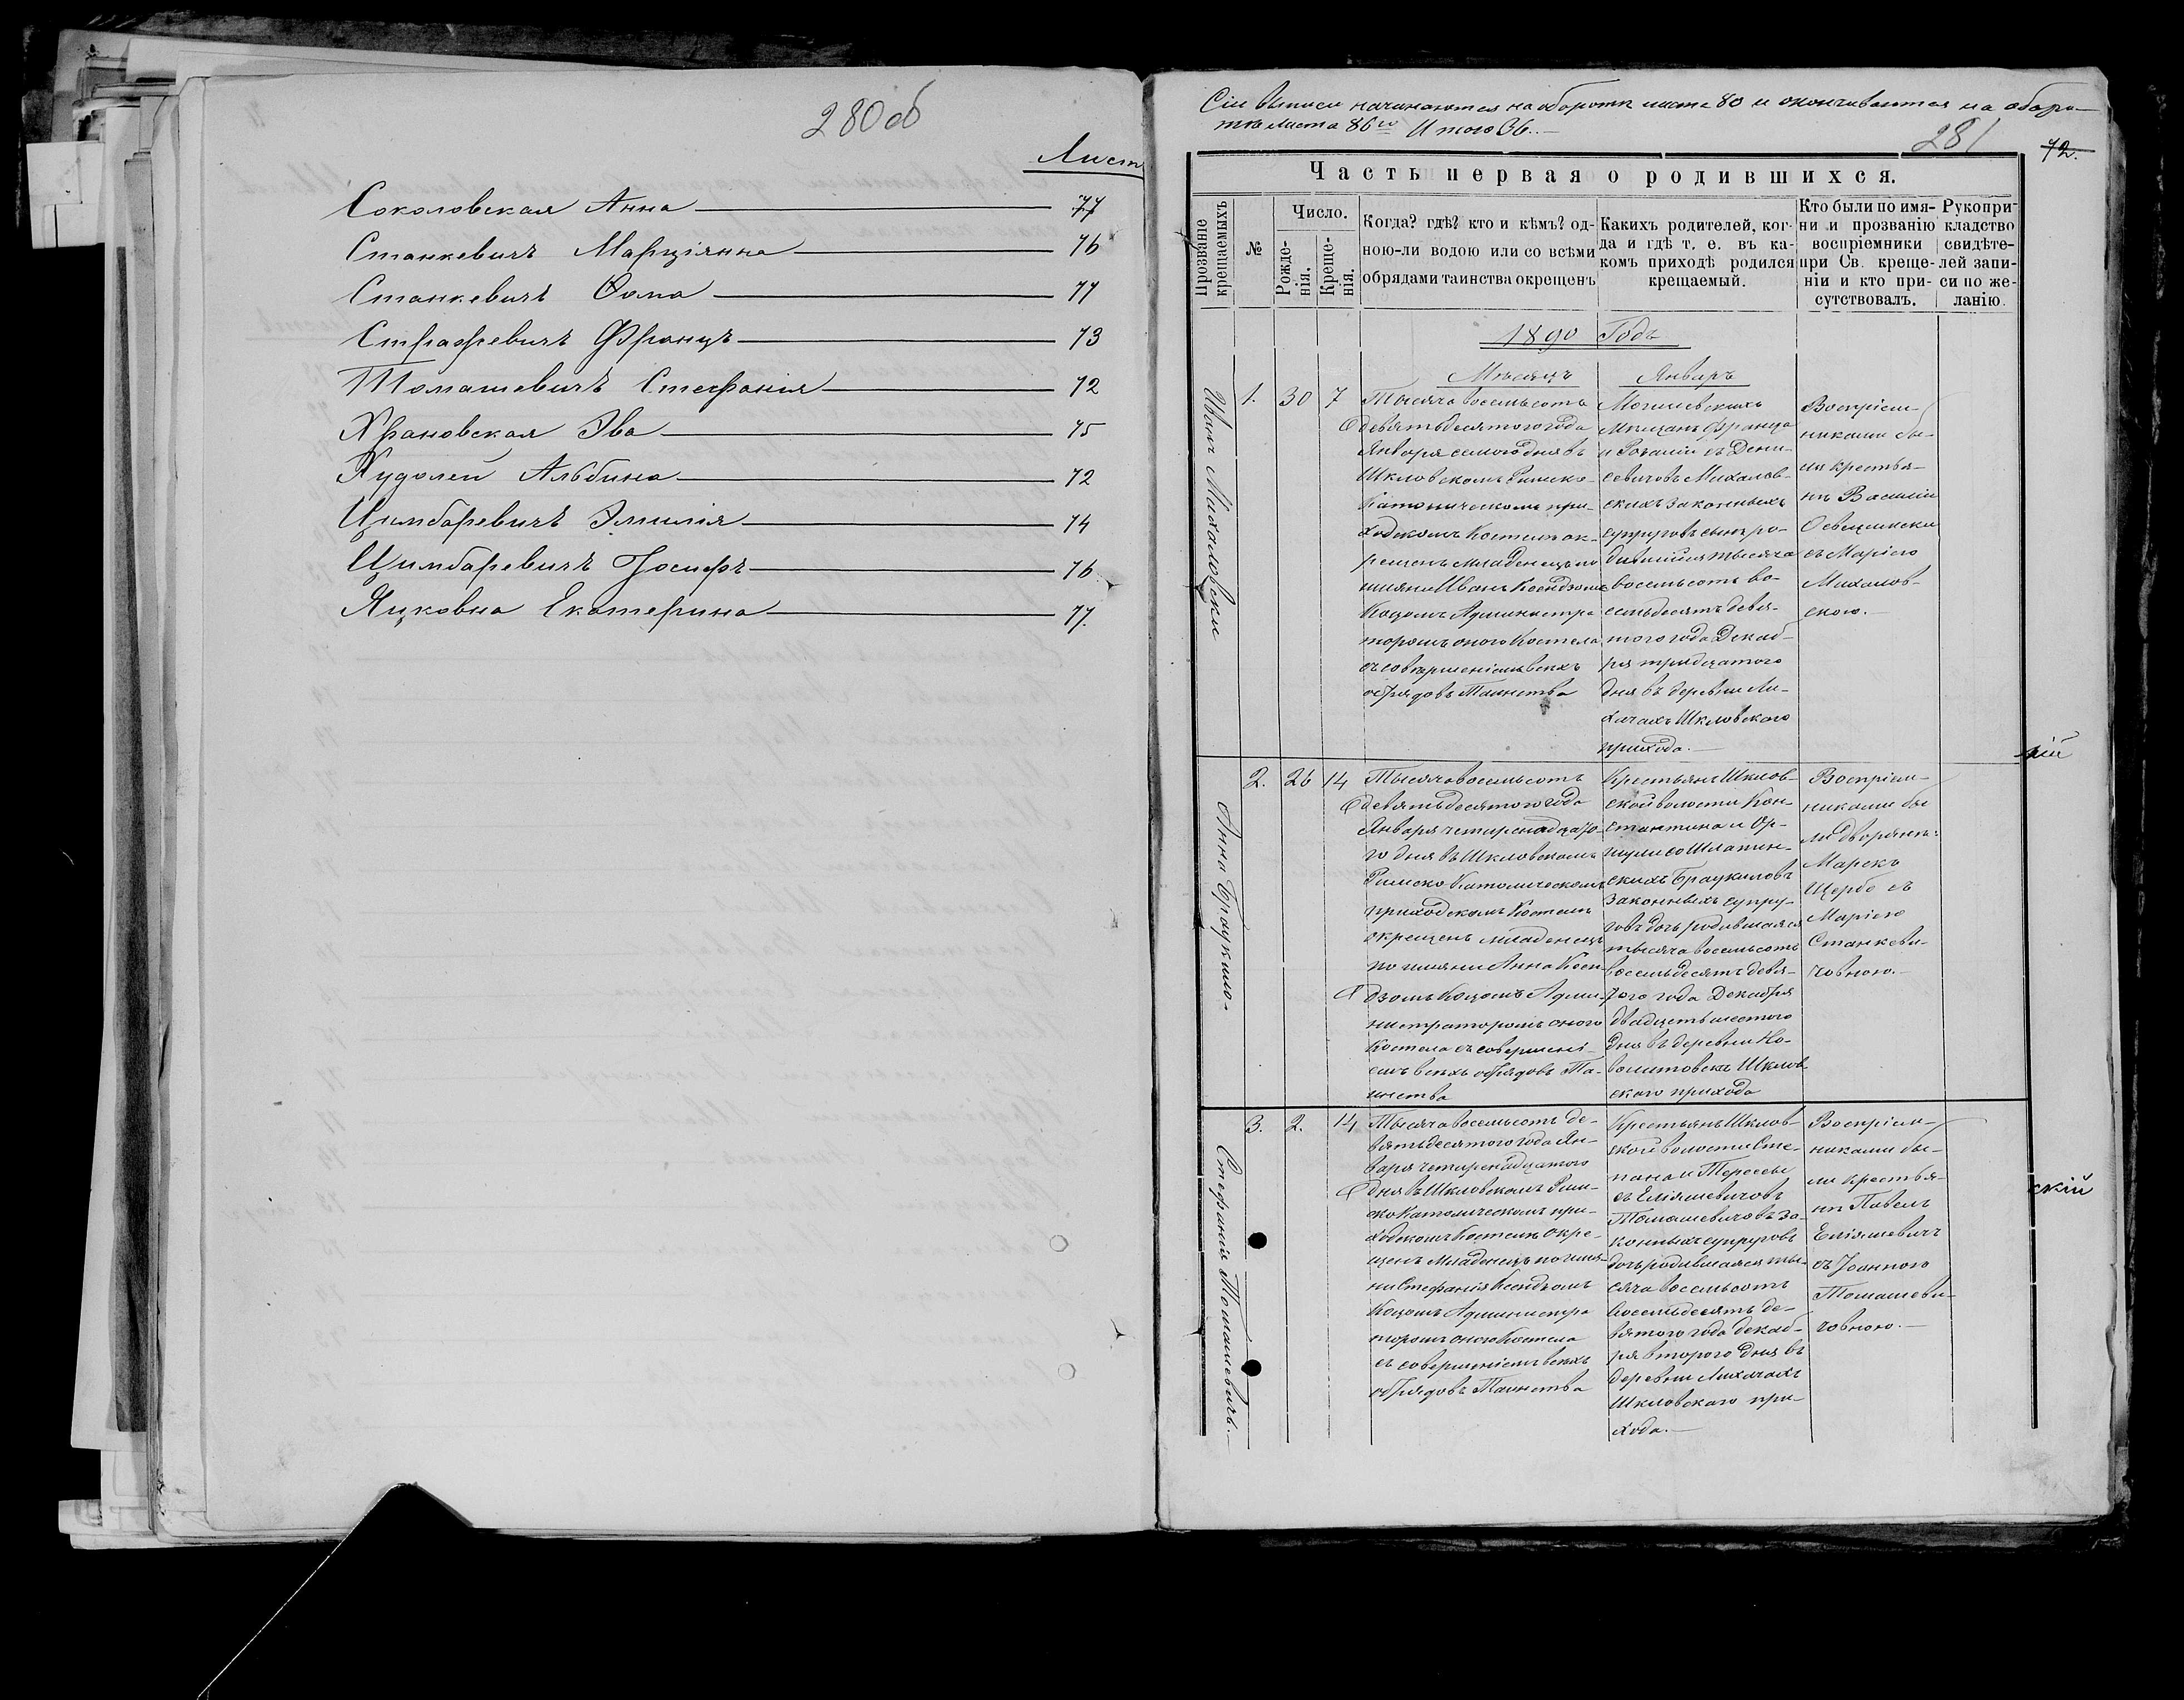 280об
Листъ
Соколовская Анна 77
Станкевичъ Марціянна 76
Станкевичъ Ѳома 77
Страфревичъ Францъ 73
Томашевичъ Стефанія 72
Храновская Эва 75
Худолей Альбина 72
Цимбаревичъ Эмилія 74
Цимбаревичъ Іосифъ 76
Яцковна Екатерина 77.
Сіи выписи начинаются на оборотѣ листа 80 и окончиваются на оборо-
тѣ листа 86го Итого 36.
281
72.
Часть первая о родившихся.
Прозваніе крещаемыхъ
№
Число.
Рожде-
нія.
Креще-
нія.
Когда? гдѣ? кто и кѣмъ? од-
ною-ли водою или со всѣми
обрядами таинства окрещенъ
Какихъ родителей, ког-
да и гдѣ т. е. въ ка-
комъ приходѣ родился
крещаемый.
Кто были по имя-
ни и прозванію
воспріемники
при Св. креще-
ніи и кто при-
сутствовалъ.
Рукопри-
кладство
свидѣте-
лей запи-
си по же-
ланію.
1890 Годъ
Мѣсяцъ Январь
Иванъ Михаловски
1. 30 7
Тысяча восемьсотъ
девятьдесятого года
Января семого дня въ
Шкловскомъ Римско-
Католическомъ при-
ходскомъ Костелѣ ок-
рещенъ младенецъ по
имяни Иванъ Ксендзомъ
Коцомъ Администра
торомъ оного Костела
съ совершеніемъ всѣхъ
обрядовъ Таинства
Могилевскихъ
Мѣщанъ Франца
и Розаліи съ Дени-
севичовъ Михалов-
скихъ законныхъ
супруговъ сынъ ро-
дившійся тысяча
восемьсотъ во-
семьдесятъ девя-
того года Декаб-
ря тридцатого
дня въ деревни Ли-
хачахъ Шкловского
прихода.
Воспріем-
никами бы-
ли крестья-
нѣ Василій
съ Маріею
Михалов-
скою.
Анна Браукило.
2. 26 14
Тысяча восемьсотъ
девятьдесятого года
Января четирнадцато-
го дня въ Шкловскомъ
Римско Католическомъ
приходскомъ Костелѣ
окрещенъ младенецъ
по имяни Анна Ксен-
дзомъ Коцомъ Адми-
нистраторомъ оного
Костела съ совершені-
емъ всѣхъ обрядовъ Та-
инства
Крестьянъ Шклов-
ской волости Кон-
стантина и Ор-
шули со Шлапин-
скихъ Браукиловъ
законныхъ супру-
говъ дочь родившаяся
тысяча восемьсотъ
восемьдесятъ девя-
того года Декабря
двадцать шестого
дня въ деревни Но-
волитовскъ Шклов
ского прихода
Воспріем-
никами бы
ли дворянѣ:
Марекъ
Щербо съ
Маріею
Станкеви-
човною.
Стефанія Томашевичъ.
3. 2. 14
Тысяча восемьсотъ де-
вятьдесятого года Ян-
варя четирнадцатого
дня въ Шкловскомъ Рим-
ско Католическомъ при-
ходскомъ Костелѣ окре-
щенъ младенецъ по имя-
ни Стефанія Ксендзомъ
Коцомъ Администра
торомъ оного Костела
съ совершеніемъ всѣхъ
обрядовъ Таинства
Крестьянъ Шклов-
ской волости Сте-
пана и Терессы
съ Еліяшевичовъ
Томашевичовъ за-
конныхъ супруговъ
дочь родившаяся ты-
сяча восемьсотъ
восемьдесятъ де-
вятого года декаб-
ря второго дня въ
деревни Лихачахъ
Шкловского при-
хода.
Воспріем-
никами бы-
ли крестья-
нѣ Павелъ
Еліяшевичъ
съ Іоанною
Томашеви-
човною.
скій